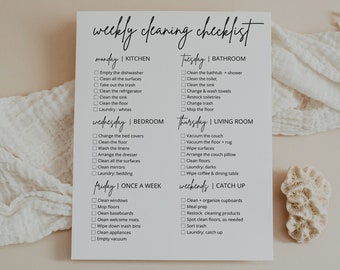 weekly cleaning checklist
monday | KITCHEN
Empty the dishwasher
Clean all the surfaces
Take out the trash
Clean the refrigerator
Clean the sink
Clean the floor
Laundry: whites
tuesday | BATHROOM
Clean the bathtub + shower
Clean the toilet
Clean the sink
Change & wash towels
Restock toiletries
Change trash
Mop the floor
wednesday | BEDROOM
Change the bed covers
Clean the floor
Wash the linens
Arrange the dresser
Clean all the surfaces
Clean mirrors
Laundry: bedding
thursday | LIVING ROOM
Vacuum the couch
Vacuum the floor + rug
Wipe surfaces
Arrange the couch pillow
Clean floors
Laundry: darks
Wipe coffee & dining table
friday | ONCE A WEEK
Clean windows
Mop floors
Clean baseboards
Clean welcome mats
Wipe down trash bins
Clean appliances
Empty vacuum
weekends | CATCH UP
Clean + organize cupboards
Meal prep
Restock cleaning products
Spot clean floors, as needed
Sort trash
Laundry; catch up